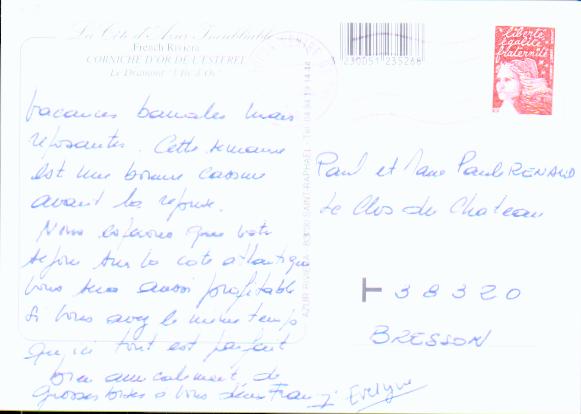 La Côte d'Azur Inoubliable
French Riviera
CORNICHE D'OR DE L'ESTEREL
Le Dramont "L'Ile d'Or"
3 230051 235268
liberté
égalité
fraternité
AZUR RIVIERA - 83700 SAINT-RAPHAËL - Tél. 04 94 19 14 14
Vacances banales mais
reposantes. Cette semaine
est une bonne
avant la reprise.
Nous espérons que votre
séjour sur la côte atlantique
vous sera aussi profitable
Si vous avez le même temps
qu'ici tout est parfait
bien amicalement de
grosses bises à vous deux
Evelyne
Paul et Marie Paule RENAUD
Le Clos du Chateau
T 38320
BRESSON